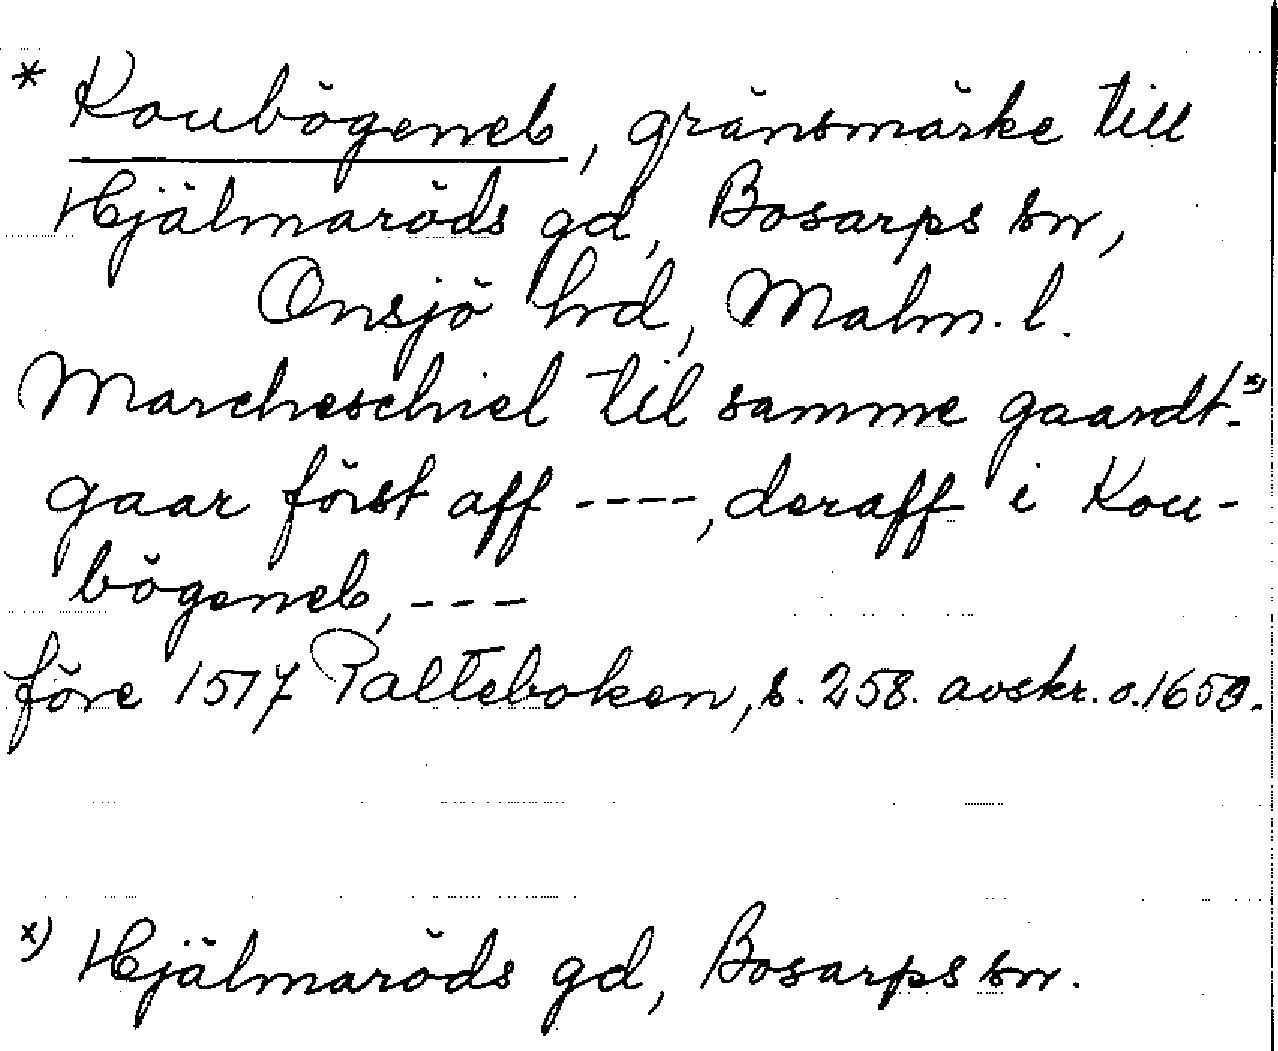 * Koubögeneb, gränsmärke till
Hjälmaröds gd, Bosarps sn,
Onsjö hrd, Malm. l.
Marcheschiel til samme gaardt x)
gaar först aff ----, deraff i Kou-
bögeneb, ---
före 1517 Palteboken, s. 258. avskr. o. 1650.
x) Hjälmaröds gd, Bosarps sn.